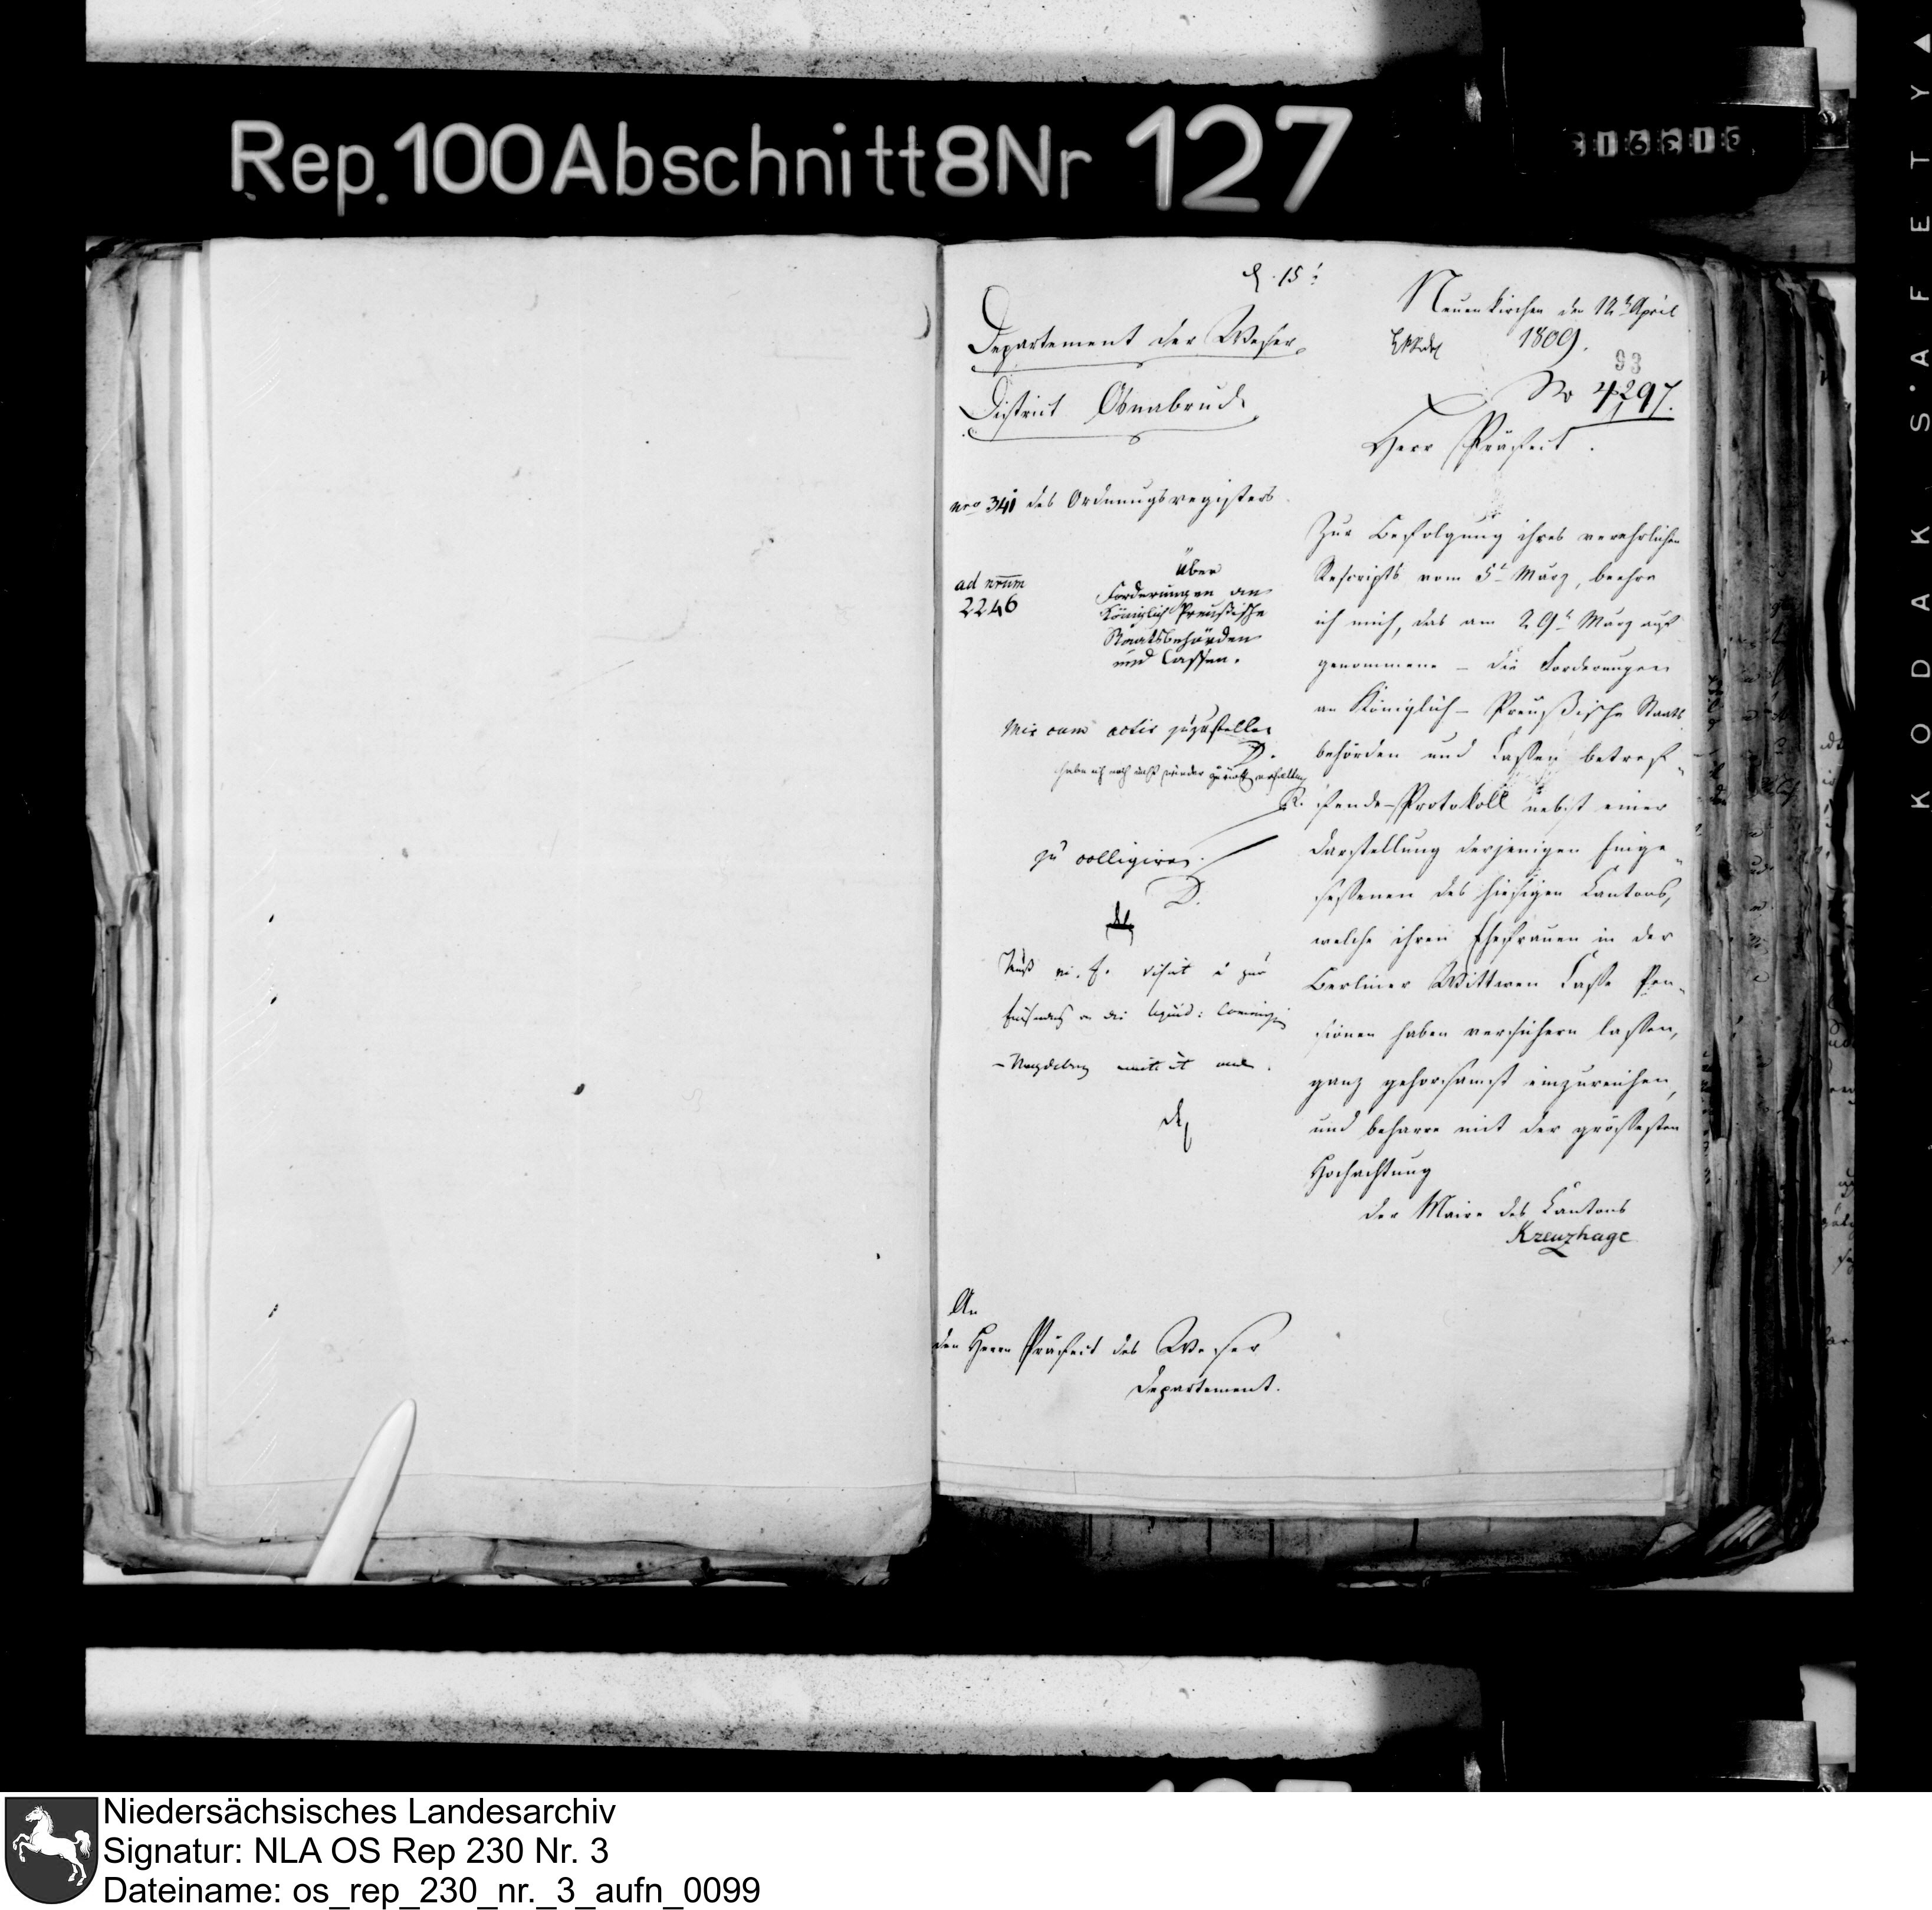 Rep. 100 Abschnitt 8 Nr 127
316315
KODAK S'AFETY
15
Departement der Weser
District Osnabruck
Neuenkirchen den 12t April
1809.
93
No 4297.
Herr Präfect.
nro 341 des Ordnungsregisters
ad nrum
2246
über
Forderungen an
Königlich Preußische
Staatsbehörden
und Cassen.
Mir cum actis zuzustellen
D.
habe ich noch nicht wieder zurück erhalten
R.
zu colligiren.
D.
Zur Befolgung ihres verehrlichen
Rescripts vom 5t März, beehre
ich mich, das am 29t März auf
genommene – die Forderungen
an Königlich – Preußische Staats
behörden und Cassen betref
fende – Protokoll nebst einer
Darstellung derjenigen Einge
sessenen des hiesigen Cantons,
welche ihren Ehefrauen in der
Berliner Wittwen Casse Pen
sionen haben versichern lassen,
ganz gehorsamst einzureichen,
und beharre mit der größesten
Hochachtung
der Maire des Cantons
Kreuzhage
An
den Herrn Präfect des Weser
Departement.
Niedersächsisches Landesarchiv
Signatur: NLA OS Rep 230 Nr. 3
Dateiname: os_rep_230_nr._3_aufn_0099